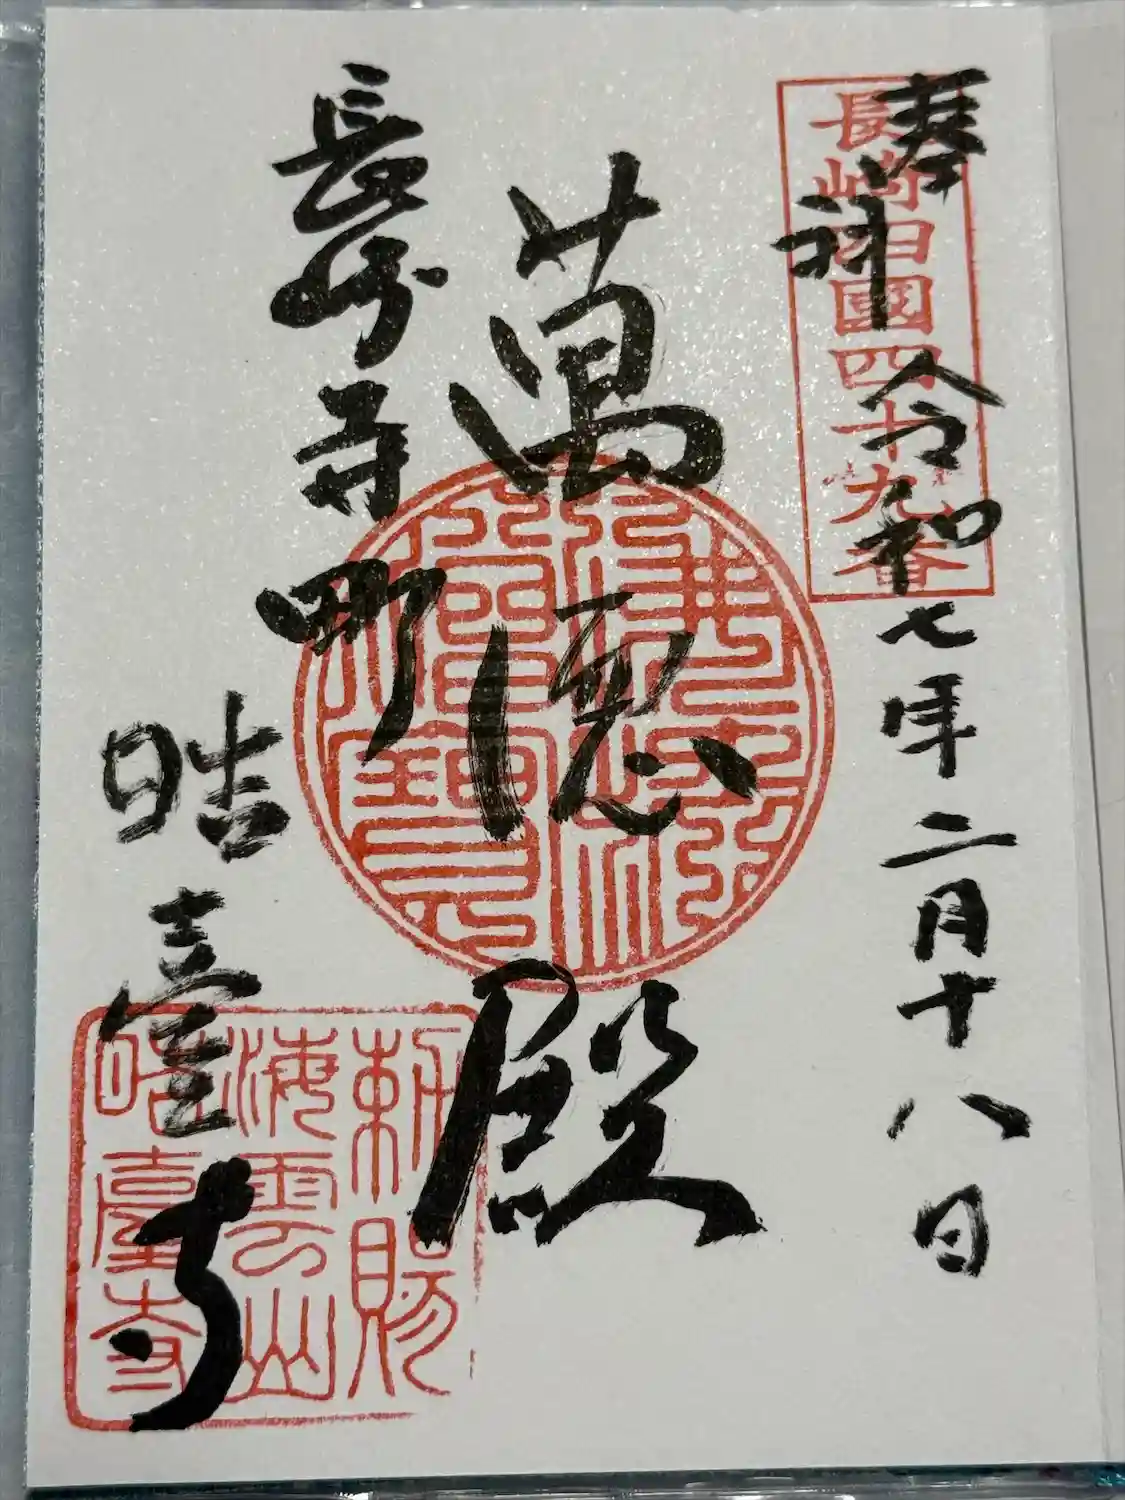 奉拝
長崎四國四十九番
令和七年二月十八日
萬德殿
長崎寺町
晧臺寺
勅賜
海雲山
晧臺寺